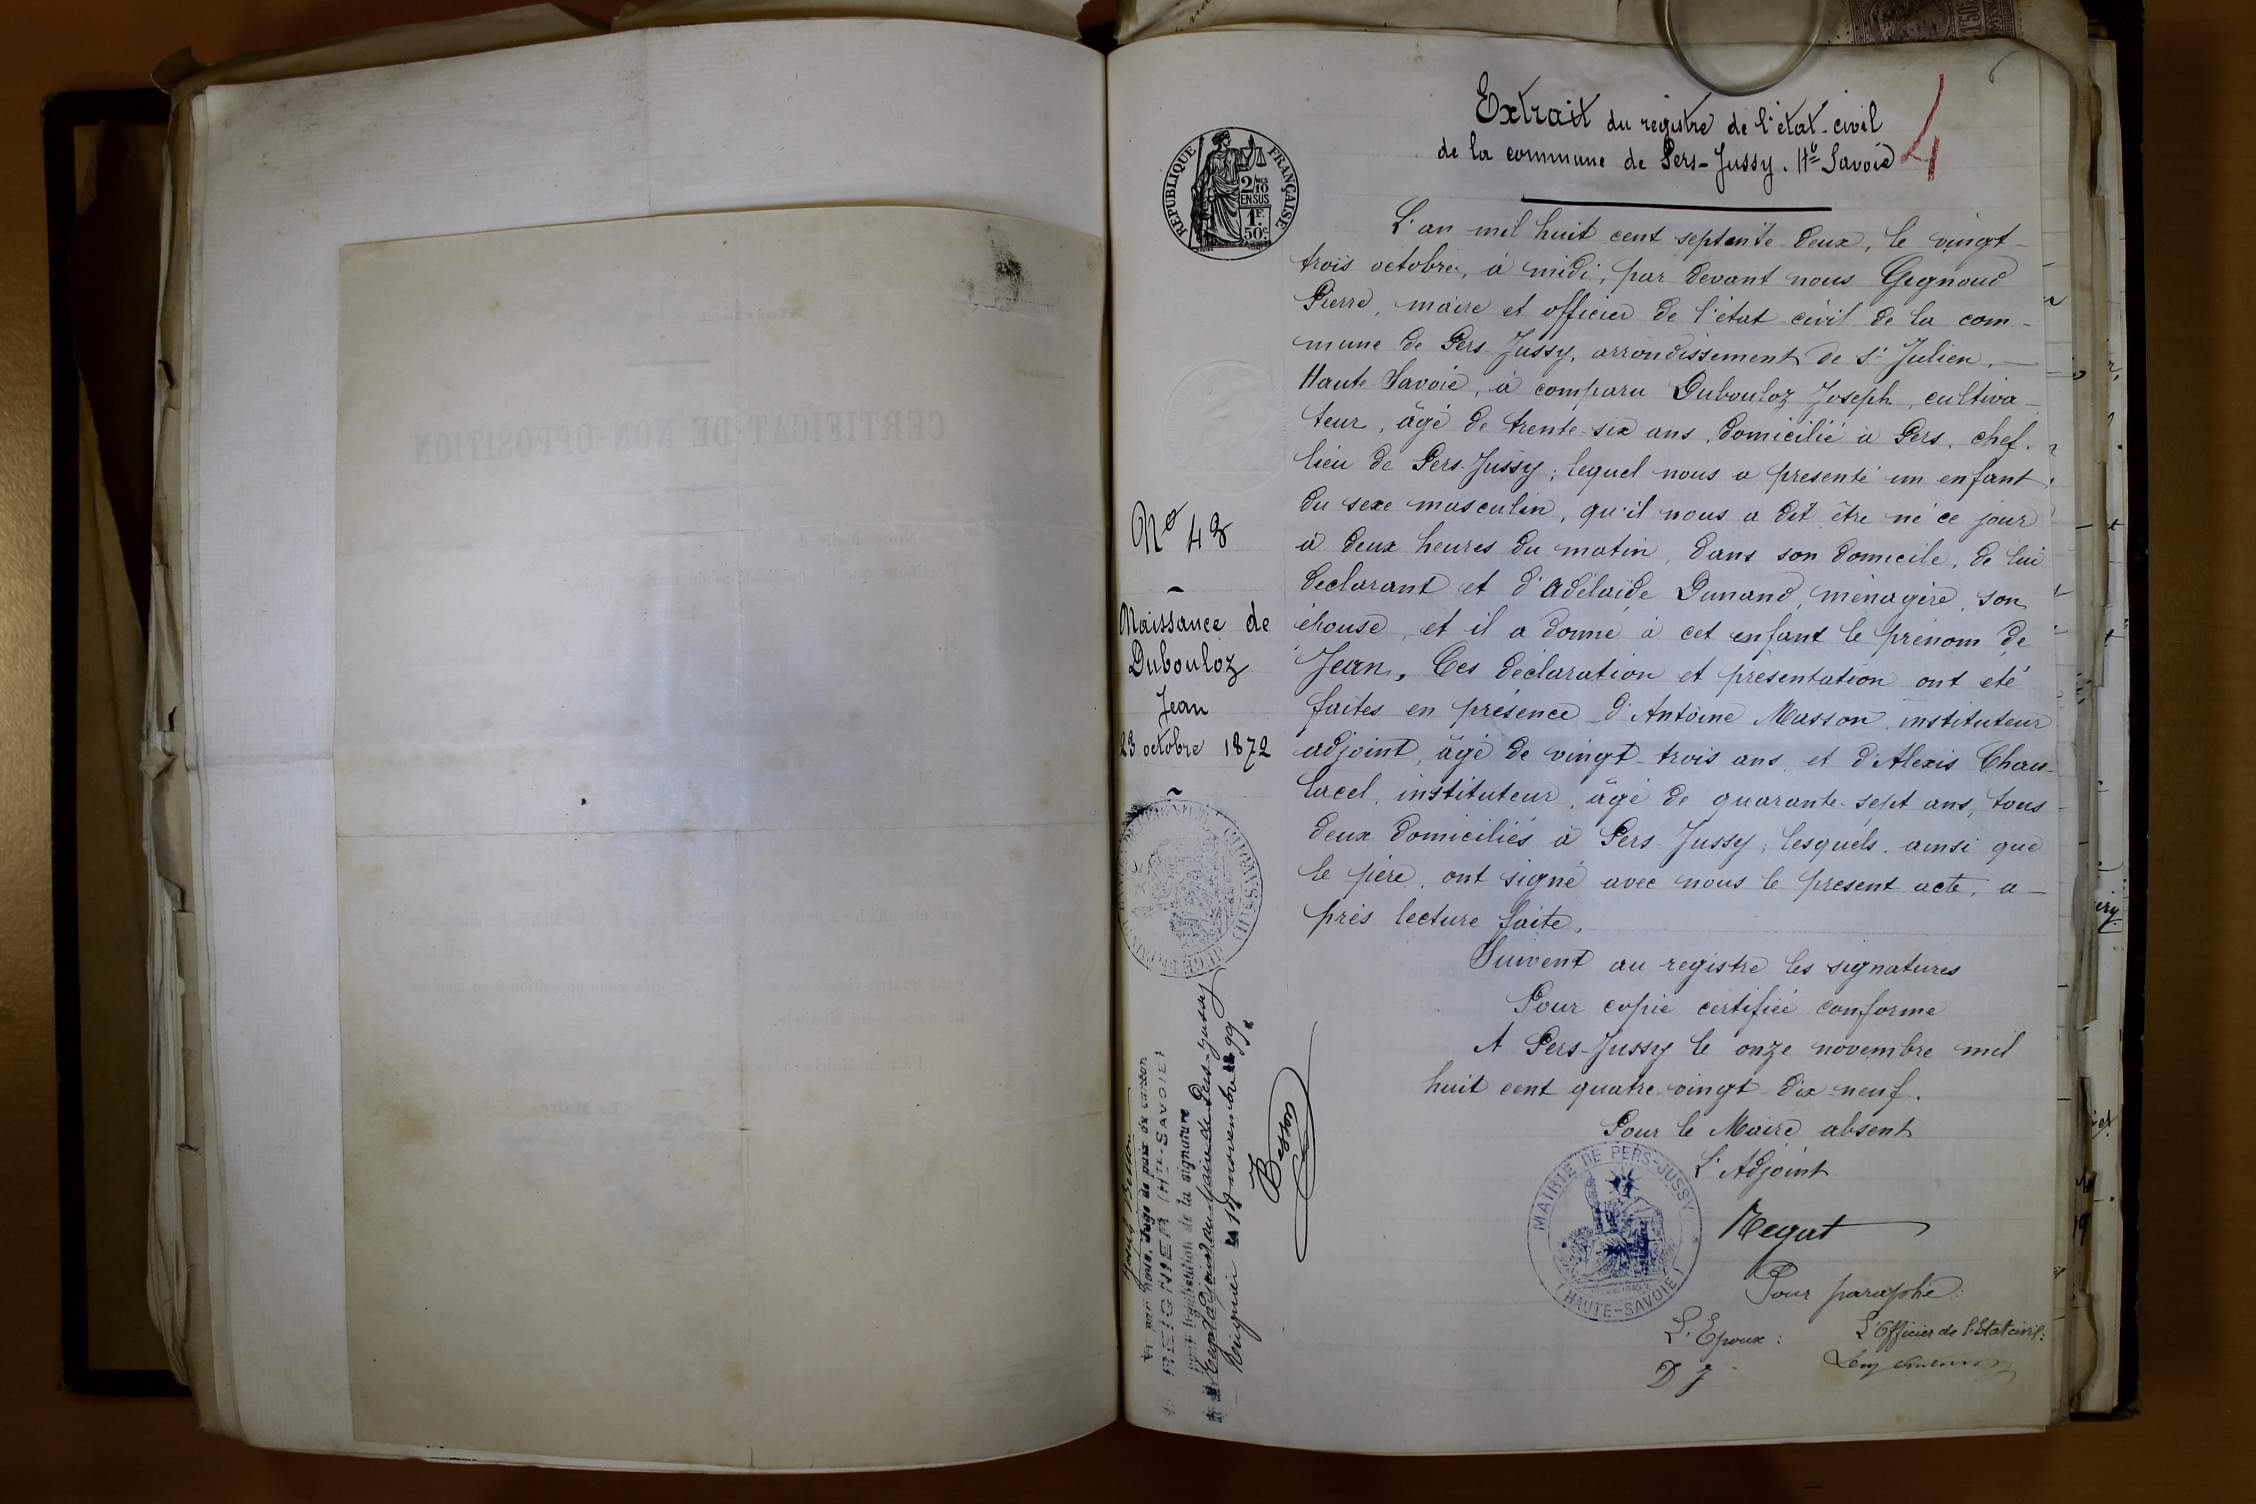 CERTIFICAT DE NON-OPPOSITION
Extrait du registre de l'état-civil
de la commune de Pers-Jussy. Hte Savoie
4
RÉPUBLIQUE FRANÇAISE
2/10
EN SUS
1F.
50c.
L'an mil huit cent septante deux, le vingt-
trois octobre, à midi, par devant nous Gegnoud
Pierre, maire et officier de l'état civil de la com-
mune de Pers-Jussy, arrondissement de St Julien,
Haute Savoie, à comparu Dubouloz Joseph, cultiva-
teur, âgé de trente-six ans, domicilié à Pers, chef-
lieu de Pers-Jussy; lequel nous a présenté un enfant
du sexe masculin, qu'il nous a dit être né ce jour
à deux heures du matin, dans son domicile, de lui
déclarant et d'Adélaïde Dunand, ménagère, son
épouse, et il a donné à cet enfant le prénom de
Jean. Ces déclaration et présentation ont été
faites en présence d'Antoine Masson instituteur
adjoint, âgé de vingt-trois ans et d'Alexis Chau-
tacel, instituteur, âgé de quarante-sept ans, tous
deux domiciliés à Pers-Jussy; lesquels ainsi que
le père, ont signé avec nous le présent acte, a-
près lecture faite.
Suivent au registre les signatures
Pour copie certifiée conforme
A Pers-Jussy le onze novembre mil
huit cent quatre-vingt dix-neuf.
Pour le Maire absent
L'Adjoint
Pour paraphe:
L'Epoux:
L'Officier de l'Etat civil:
D J
MAIRIE DE PERS-JUSSY
(HAUTE-SAVOIE)
No 43
Naissance de
Dubouloz
Jean
23 octobre 1872
Vu par nous, Juge de paix du canton
REIGNIER (Hte-SAVOIE)
pour légalisation de la signature
Reignier le novembre 99